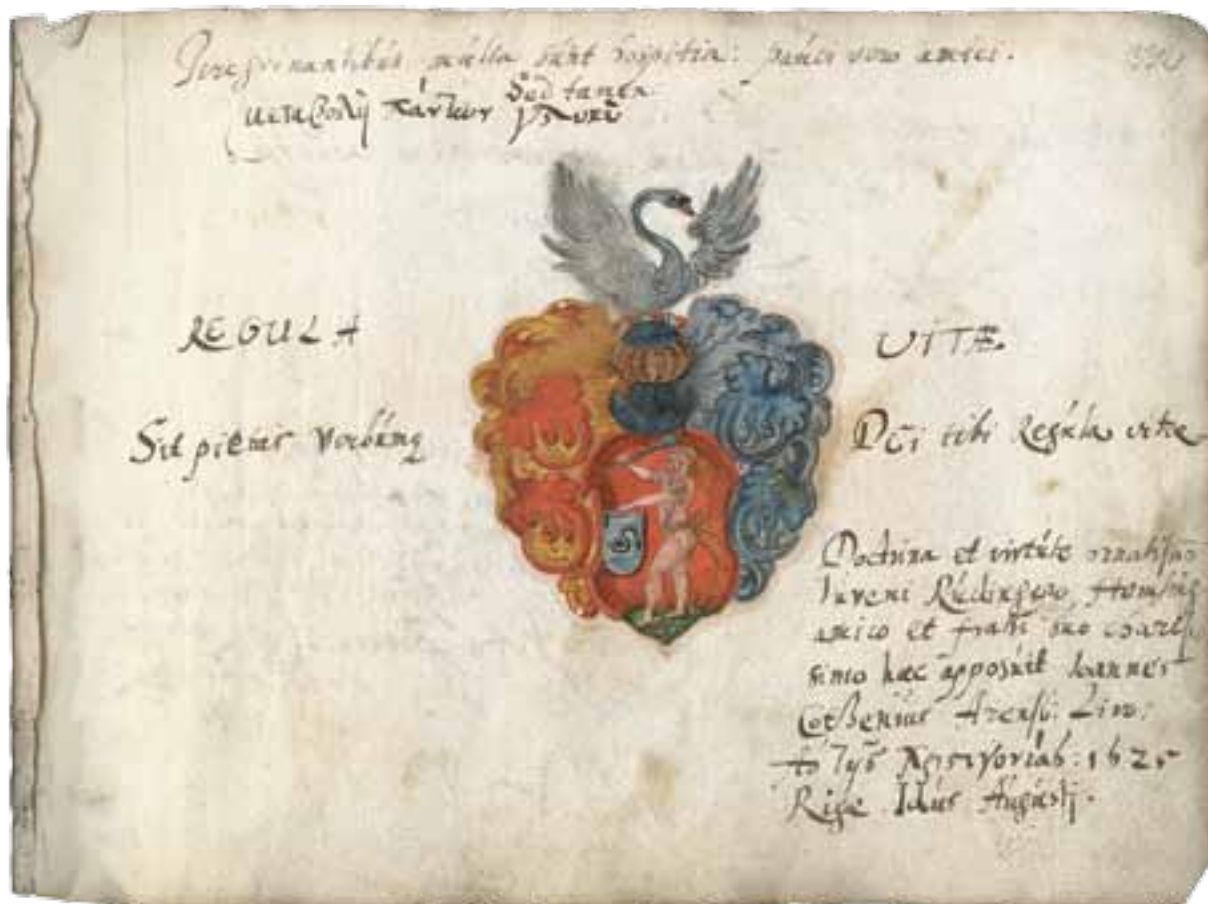 Peregrinantibus multa sunt hospitia: pauci vero amici.
Sed tamen
μεταβολὴ πάντων γλυκύ
REGULA VITÆ
Sit pietas Verbumq DEi tibi Regula vitæ
Doctrina et virtute ornatissimo
Iuveni Rüdingero
amico et fratri suo charis
simo hæc apposuit Ioannes
Arensb: Livo:
Ao 1625
Rigæ Idus Augusti.